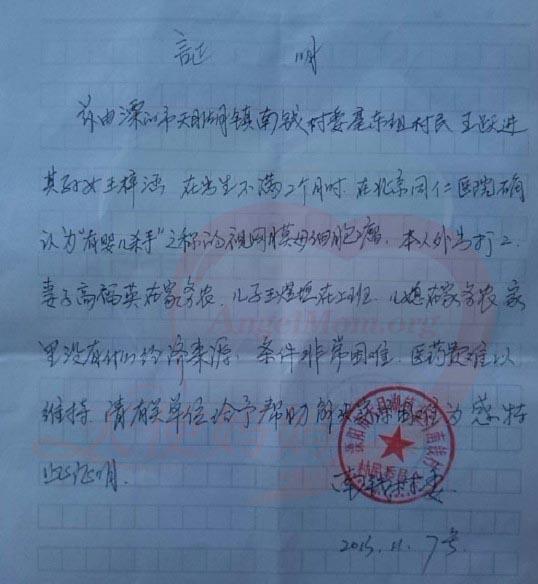 証 明
兹由溧阳市天目湖镇南钱村委 东组村民 王跃进
其孙女王梓涵 在出生不满2个月时 在北京同仁医院确
认为"有婴儿杀手"之称的视网膜母细胞瘤. 本人外出打工.
妻子高福英在家务农. 儿子王煜 在上班. 儿媳在家务农 家
里没有什么经济来源. 条件非常困难. 医药费难以
维持. 请有关单位给予帮助解决 为感 特
此证明.
南钱村委
2015. 11. 7号
AngelMom.org